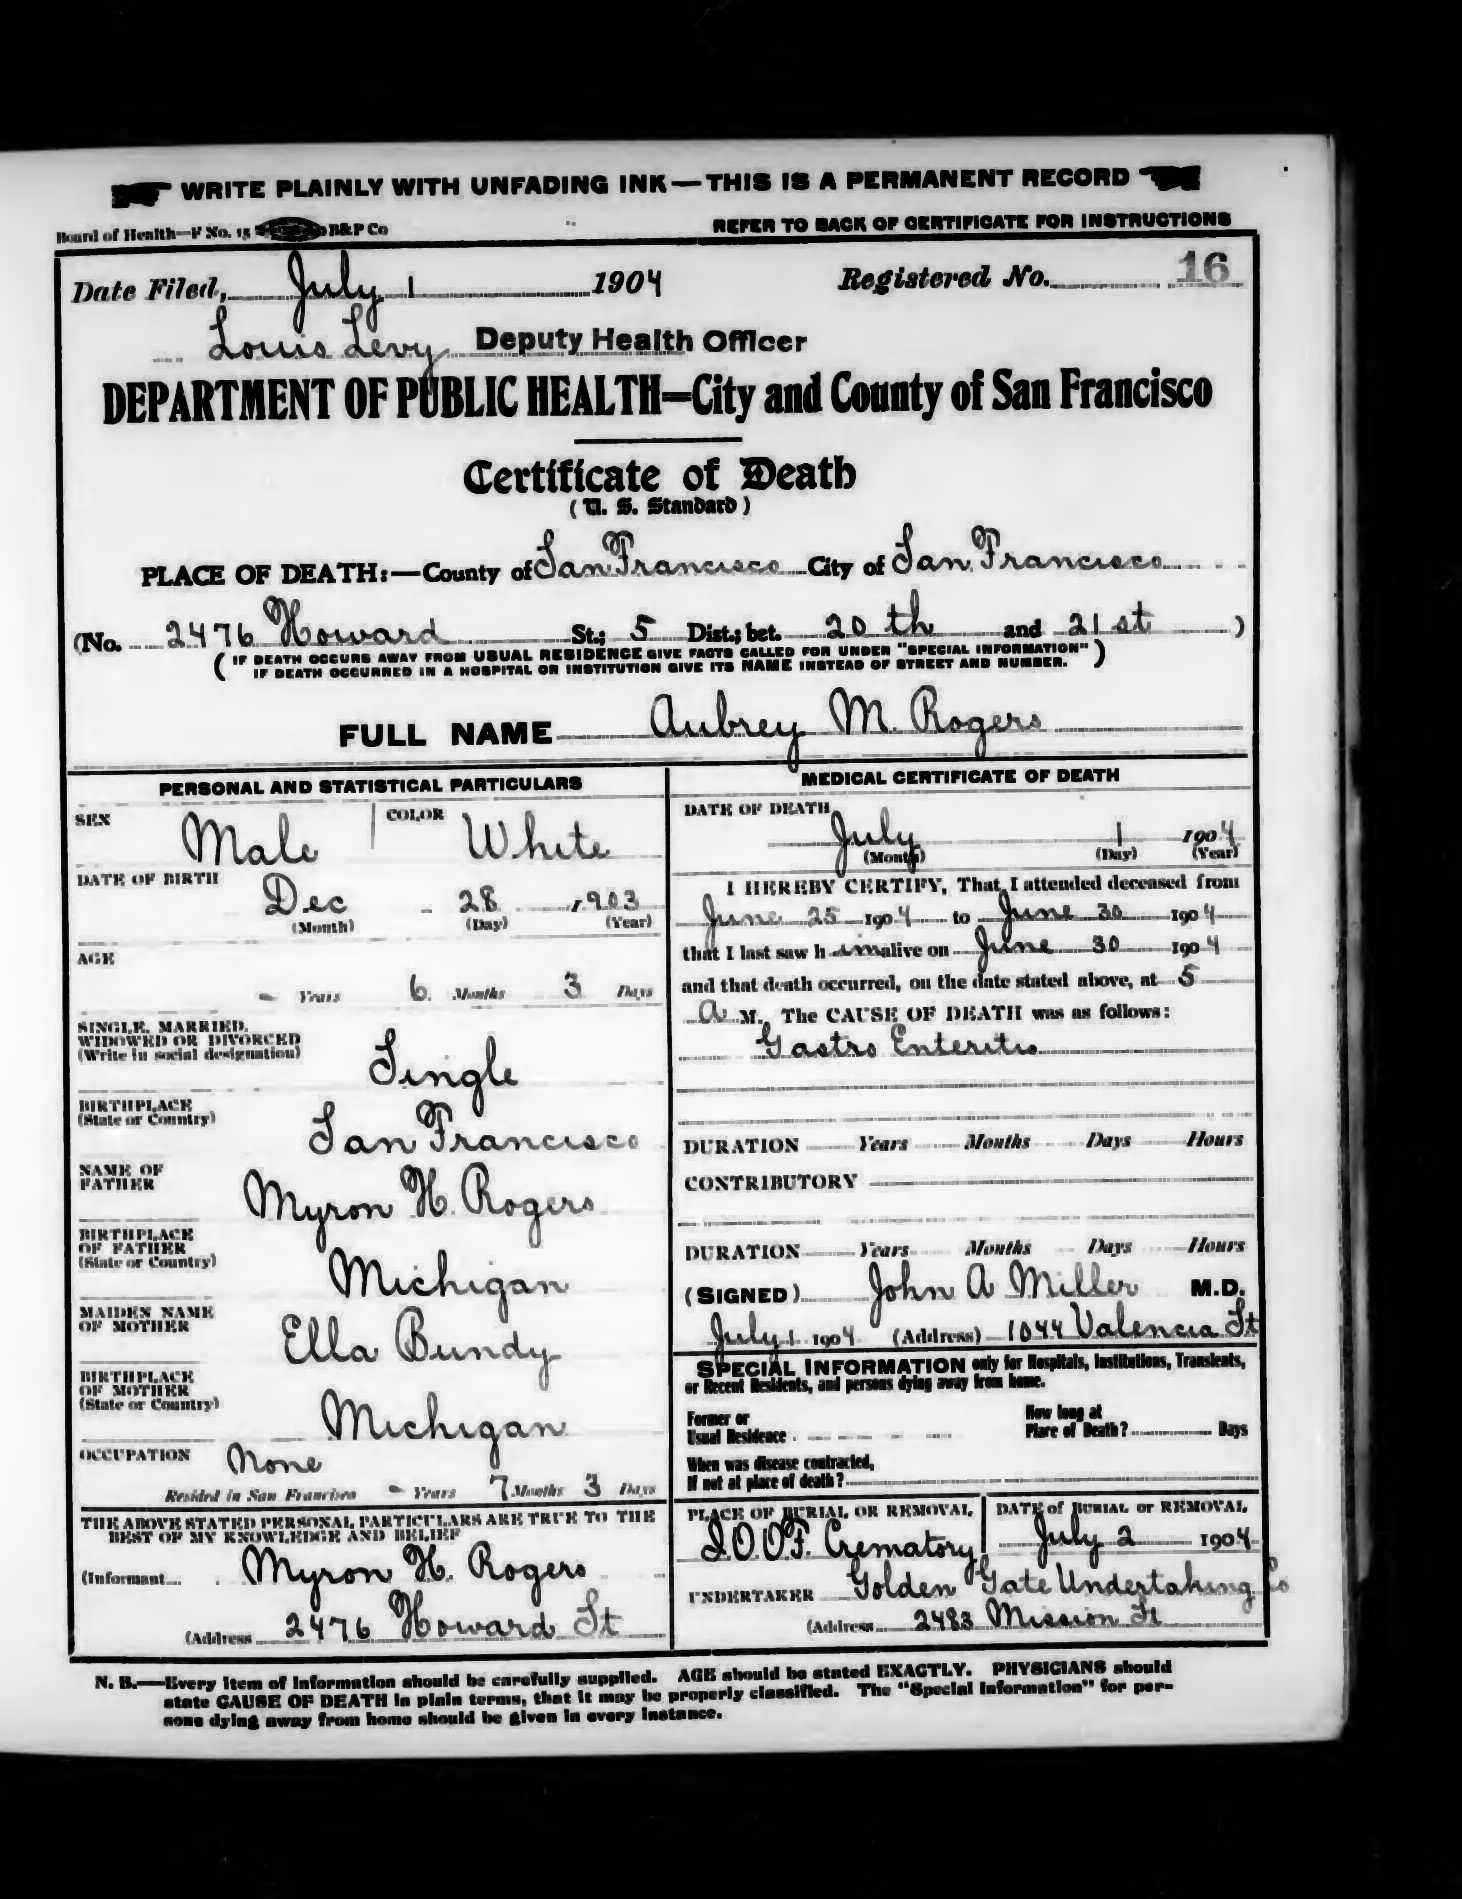 WRITE PLAINLY WITH UNFADING INK—THIS IS A PERMANENT RECORD
Board of Health—F No. 15 B&P Co REFER TO BACK OF CERTIFICATE FOR INSTRUCTIONS
Date Filed, July 1 1904 Registered No. 16
Louis Levy Deputy Health Officer
DEPARTMENT OF PUBLIC HEALTH—City and County of San Francisco
Certificate of Death
(U. S. Standard)
PLACE OF DEATH:—County of San Francisco City of San Francisco
(No. 2476 Howard St.; 5 Dist.; bet. 20th and 21st )
(IF DEATH OCCURS AWAY FROM USUAL RESIDENCE GIVE FACTS CALLED FOR UNDER "SPECIAL INFORMATION"
IF DEATH OCCURRED IN A HOSPITAL OR INSTITUTION GIVE ITS NAME INSTEAD OF STREET AND NUMBER.)
FULL NAME Aubrey M. Rogers
PERSONAL AND STATISTICAL PARTICULARS
SEX Male COLOR White
DATE OF BIRTH
Dec 28 1903
(Month) (Day) (Year)
AGE
- Years 6 Months 3 Days
SINGLE, MARRIED,
WIDOWED OR DIVORCED
(Write in social designation) Single
BIRTHPLACE
(State or Country) San Francisco
NAME OF
FATHER Myron H. Rogers
BIRTHPLACE
OF FATHER
(State or Country) Michigan
MAIDEN NAME
OF MOTHER Ella Bundy
BIRTHPLACE
OF MOTHER
(State or Country) Michigan
OCCUPATION None
Resided in San Francisco - Years 7 Months 3 Days
THE ABOVE STATED PERSONAL PARTICULARS ARE TRUE TO THE
BEST OF MY KNOWLEDGE AND BELIEF
(Informant Myron H. Rogers
(Address 2476 Howard St
MEDICAL CERTIFICATE OF DEATH
DATE OF DEATH
July 1 1904
(Month) (Day) (Year)
I HEREBY CERTIFY, That I attended deceased from
June 25 1904 to June 30 1904
that I last saw him alive on June 30 1904
and that death occurred, on the date stated above, at 5
A M. The CAUSE OF DEATH was as follows:
Gastro Enteritis
DURATION Years Months Days Hours
CONTRIBUTORY
DURATION Years Months Days Hours
(SIGNED) John A Miller M.D.
July 1 1904 (Address) 1044 Valencia St
SPECIAL INFORMATION only for Hospitals, Institutions, Transients,
or Recent Residents, and persons dying away from home.
Former or
Usual Residence
How long at
Place of Death? Days
When was disease contracted,
If not at place of death?
PLACE OF BURIAL OR REMOVAL
I.O.O.F. Crematory
DATE of BURIAL or REMOVAL
July 2 1904
UNDERTAKER Golden Gate Undertaking Co
(Address 2483 Mission St
N. B.—Every item of information should be carefully supplied. AGE should be stated EXACTLY. PHYSICIANS should
state CAUSE OF DEATH in plain terms, that it may be properly classified. The "Special Information" for per-
sons dying away from home should be given in every instance.